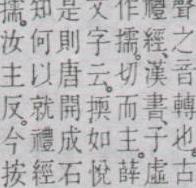 聲之音轉也。古
禮經。漢書子虛
作擩。切而主。薛
文字云。㨎如悅
是則唐開成石
知何以就禮經
擩。汝主反。今按